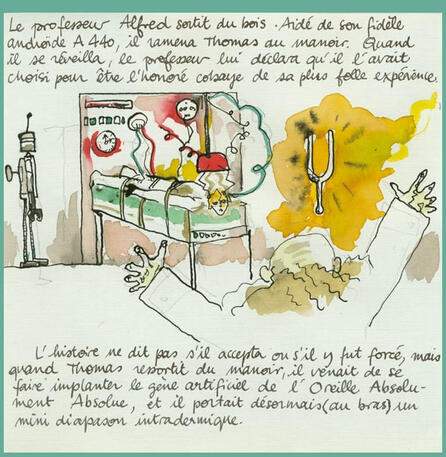 Le professeur Alfred sortit du bois. Aidé de son fidèle
androïde A 440, il ramena Thomas au manoir. Quand
il se réveilla, le professeur lui déclara qu'il l'avait
choisi pour être l'honoré cobaye de sa plus folle expérience.
L'histoire ne dit pas s'il accepta ou s'il y fut forcé, mais
quand Thomas ressortit du manoir, il venait de se
faire implanter le gène artificiel de l'Oreille Absolu-
ment Absolue, et il portait désormais (au bras) un
mini diapason intradermique.